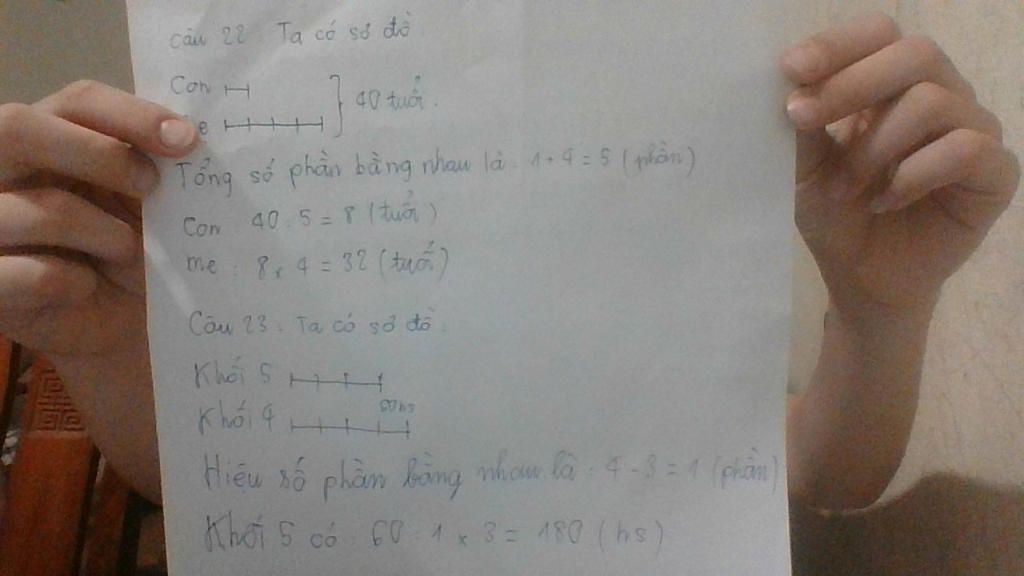 Câu 22 Ta có sơ đồ
Con
e
40 tuổi.
Tổng số phần bằng nhau là: 1 + 4 = 5 (phần)
Con 40 : 5 = 8 (tuổi)
mẹ : 8 x 4 = 32 (tuổi)
Câu 23 : Ta có sơ đồ :
Khối 5
60 hs
Khối 4
Hiệu số phần bằng nhau là : 4 - 3 = 1 (phần)
Khối 5 có : 60 : 1 x 3 = 180 (hs)